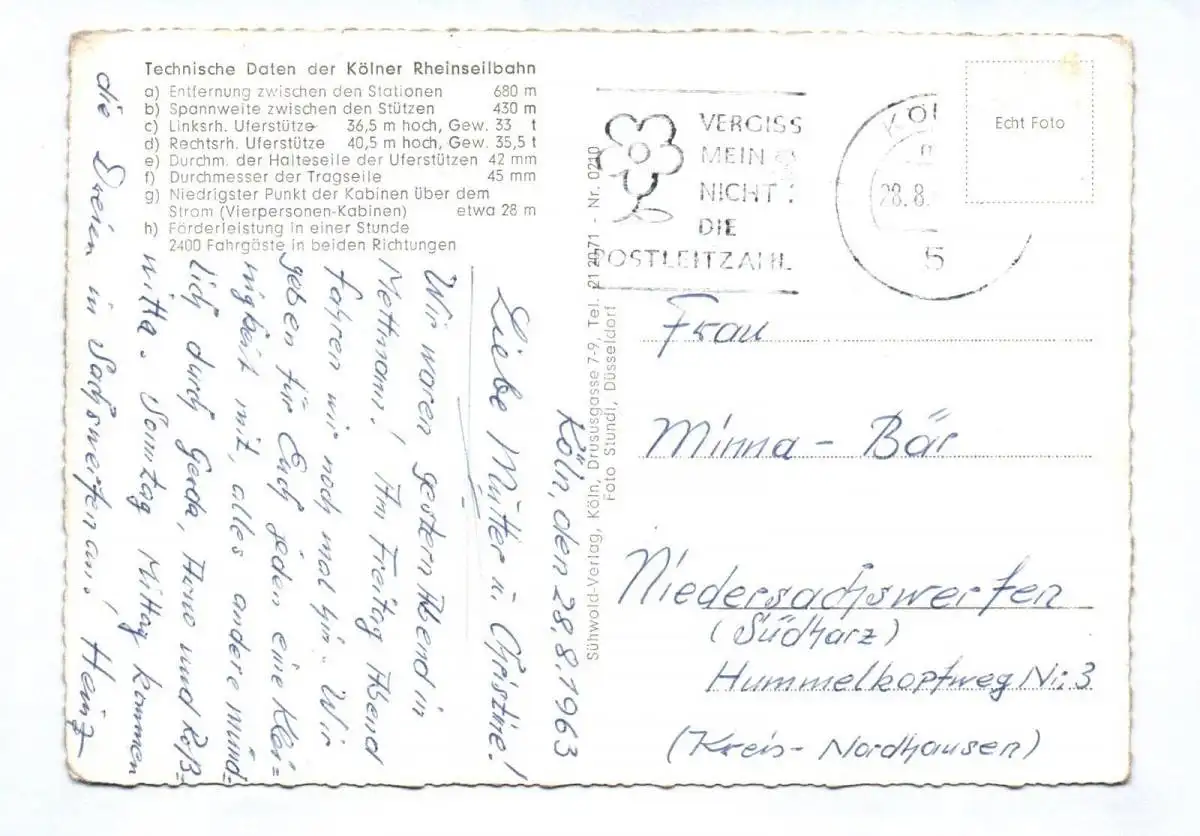 Technische Daten der Kölner Rheinseilbahn
a) Entfernung zwischen den Stationen 680 m
b) Spannweite zwischen den Stützen 430 m
c) Linksrh. Uferstütze 36,5 m hoch, Gew. 33 t
d) Rechtsrh. Uferstütze 40,5 m hoch, Gew. 35,5 t
e) Durchm. der Halteseile der Uferstützen 42 mm
f) Durchmesser der Tragseile 45 mm
g) Niedrigster Punkt der Kabinen über dem
Strom (Vierpersonen-Kabinen) etwa 28 m
h) Förderleistung in einer Stunde
2400 Fahrgäste in beiden Richtungen
Köln, den 28.8.1963
Liebe Mutter u. Christine!
Wir waren gestern Abend in
Mettmann! Am Freitag Abend
fahren wir noch mal hin. Wir
geben für Euch jeden eine Klei=
nigkeit mit, alles andere münd=
lich durch Gerda, Arno und Roß=
witha. Sonntag Mittag kommen
die Dreien in Sachswerfen an! Heinz
Sühwold-Verlag, Köln, Drususgasse 7-9, Tel. 21 29 71 - Nr. 0210
Foto Stundl, Düsseldorf
VERGISS
MEIN
NICHT:
DIE
POSTLEITZAHL
KÖL
28.8.
5
Echt Foto
Frau
Minna - Bär
Niedersachswerfen
(Südharz)
Hummelkopfweg Nr. 3
(Kreis - Nordhausen)